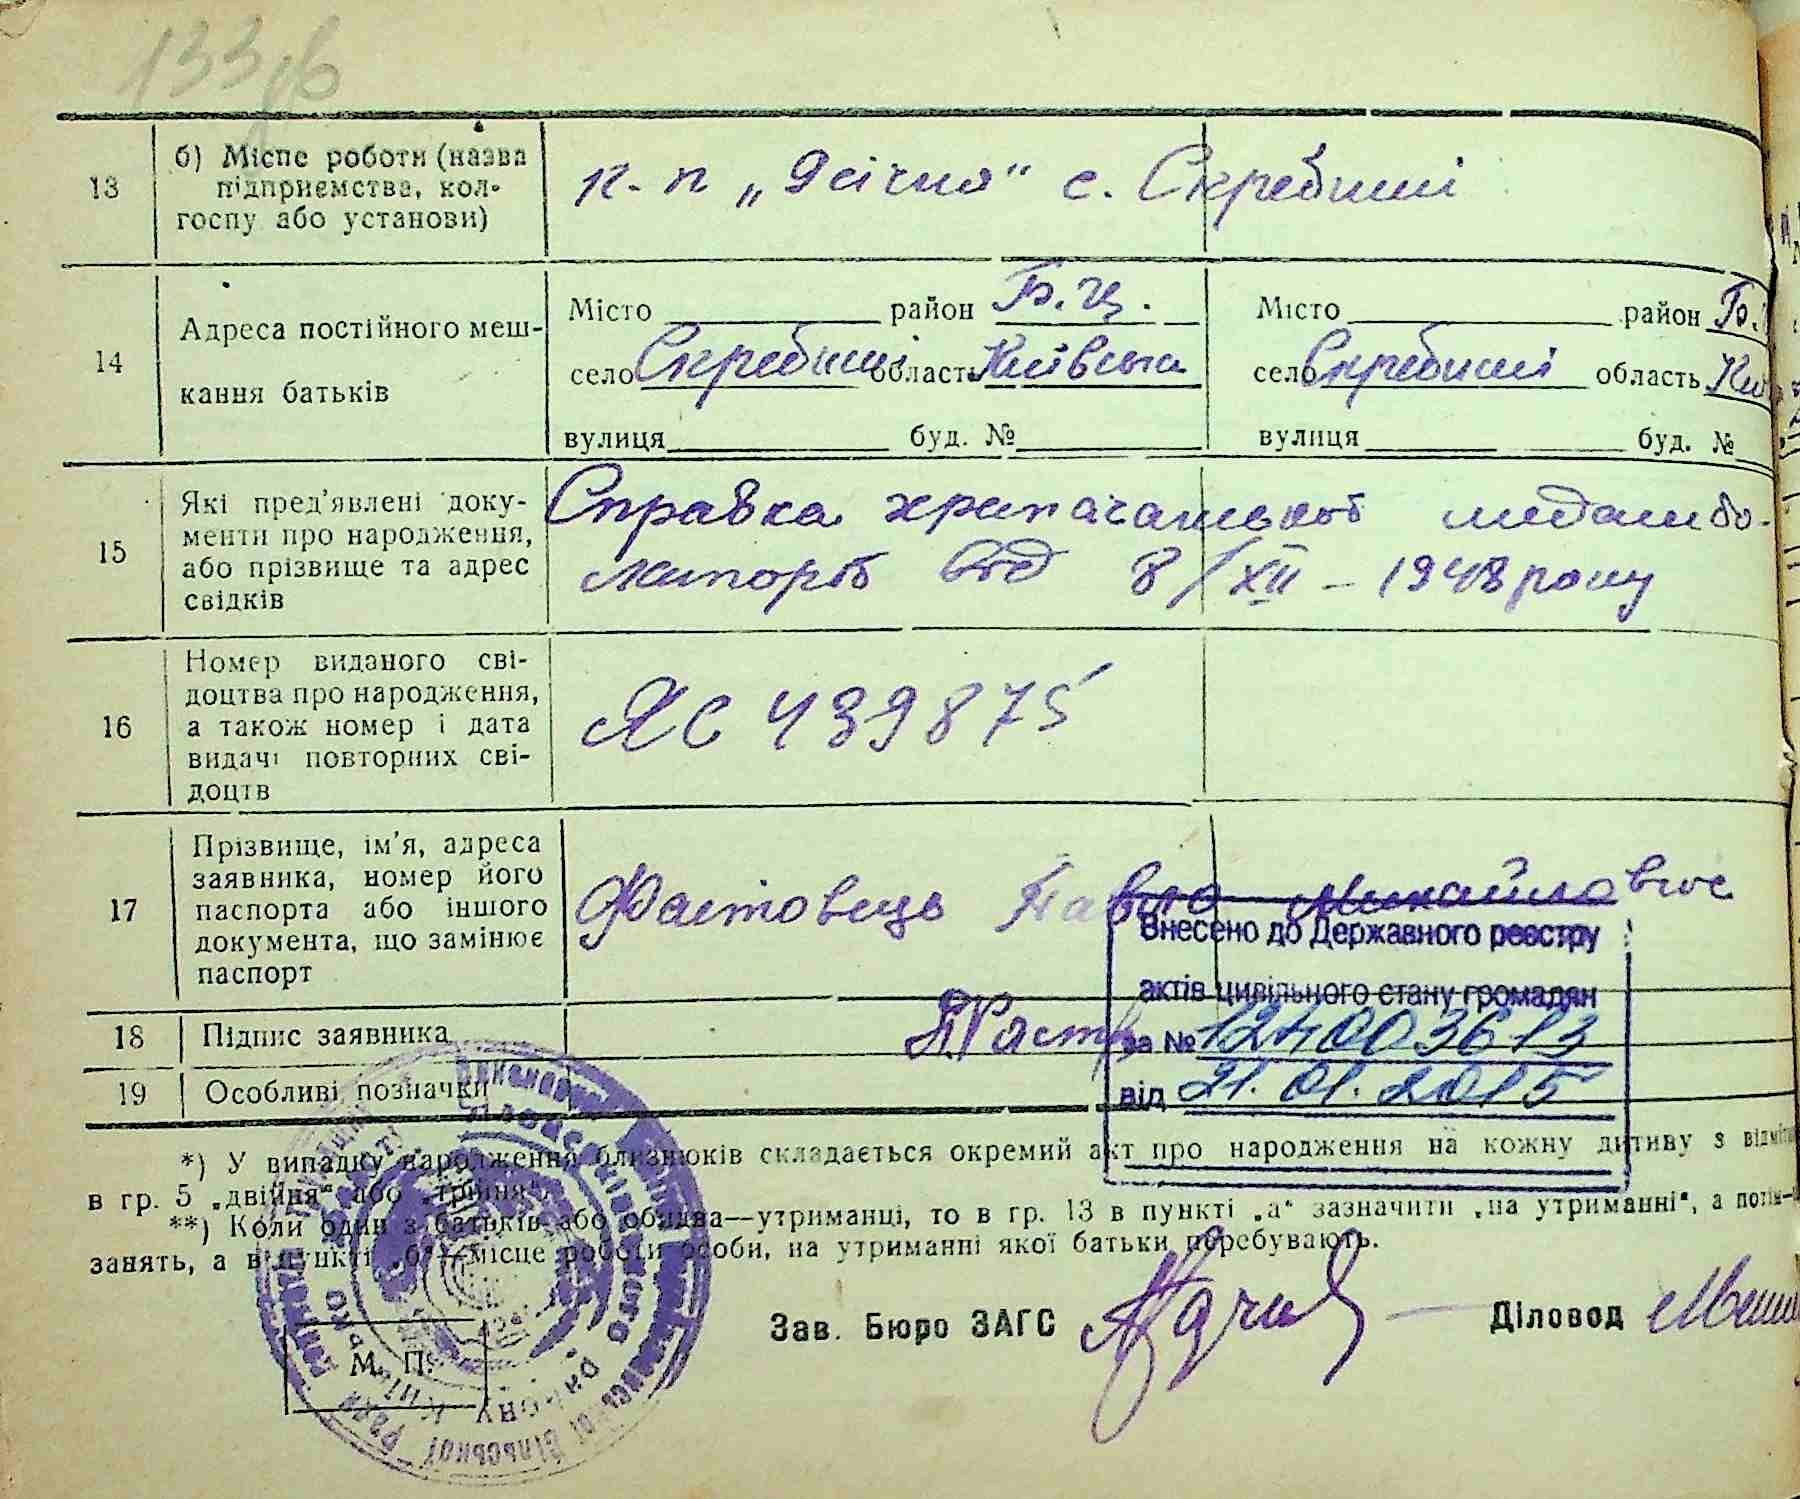 133 зв
13
б) Місце роботи (назва
підприємства, кол-
госпу або установи)
к-п „9 січня" с. Скребиші
14
Адреса постійного меш-
кання батьків
Місто район Б. Ц.
село Скребиші область Київська
вулиця буд. №
Місто район Б.
село Скребиші область Ки
вулиця буд. №
15
Які пред'явлені доку-
менти про народження,
або прізвище та адрес
свідків
Справка
від 8/XII – 1948 року
16
Номер виданого сві-
доцтва про народження,
а також номер і дата
видачі повторних сві-
доцтв
ЯС 439875
17
Прізвище, ім'я, адреса
заявника, номер його
паспорта або іншого
документа, що замінює
паспорт
Фастовець Павло Михайлович
18
Підпис заявника
19
Особливі позначки
Внесено до Державного реєстру
актів цивільного стану громадян
за №
від 21.01.2015
*) У випадку народження близнюків складається окремий акт про народження на кожну дитину з
в гр. 5 „двійня" або „трійня".
**) Коли один з батьків або обидва—утриманці, то в гр. 13 в пункті „а" зазначити „на утриманні", а
занять, а в пункті „б"—місце роботи особи, на утриманні якої батьки перебувають.
Зав. Бюро ЗАГС
Діловод
М. П.